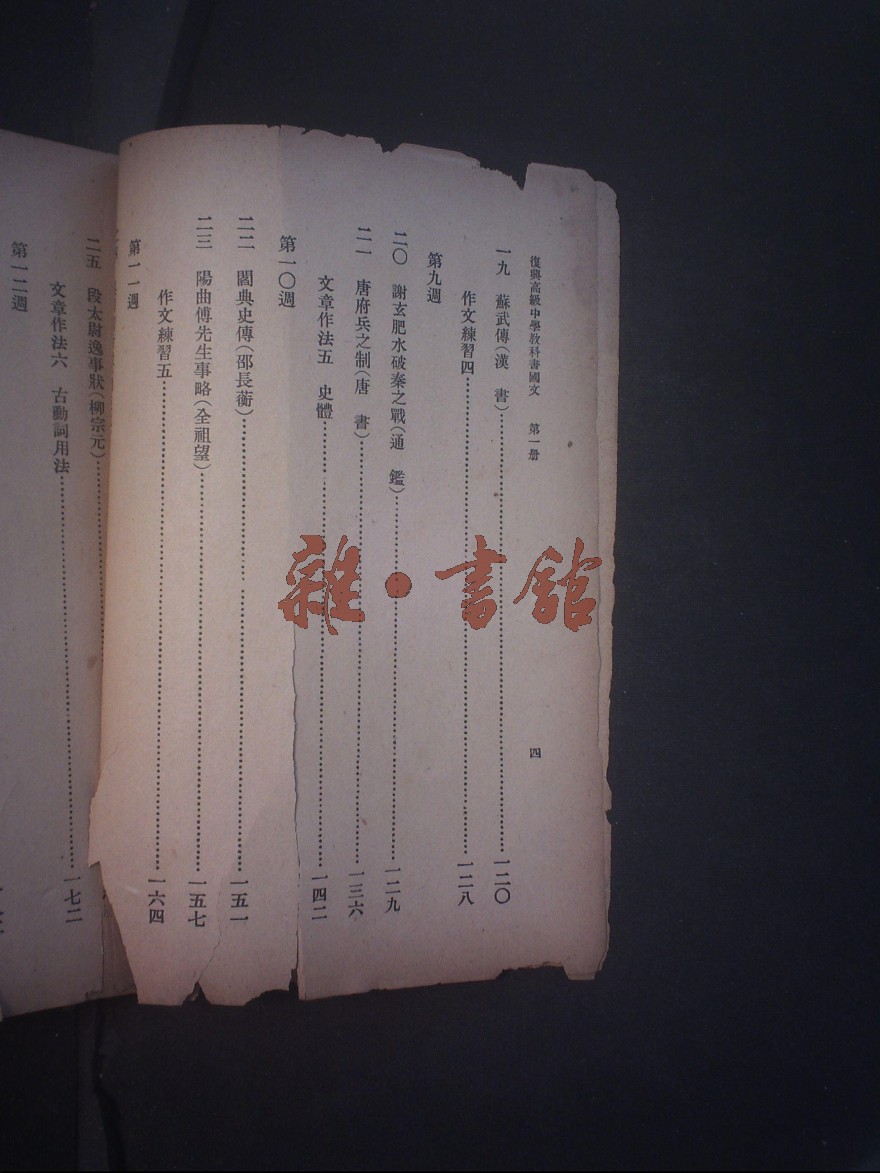 復興高級中學教科書國文　第一册
四
一九　蘇武傳（漢　書）……一二〇
作文練習四……一二八
第九週
二〇　謝玄肥水破秦之戰（通　鑑）……一二九
二一　唐府兵之制（唐　書）……一三六
文章作法五　史體……一四二
第一〇週
二二　閻典史傳（邵長蘅）……一五一
二三　陽曲傅先生事略（全祖望）……一五七
作文練習五……一六四
第一一週
二五　段太尉逸事狀（柳宗元）……
文章作法六　古動詞用法……一七二
第一二週
雜·書館